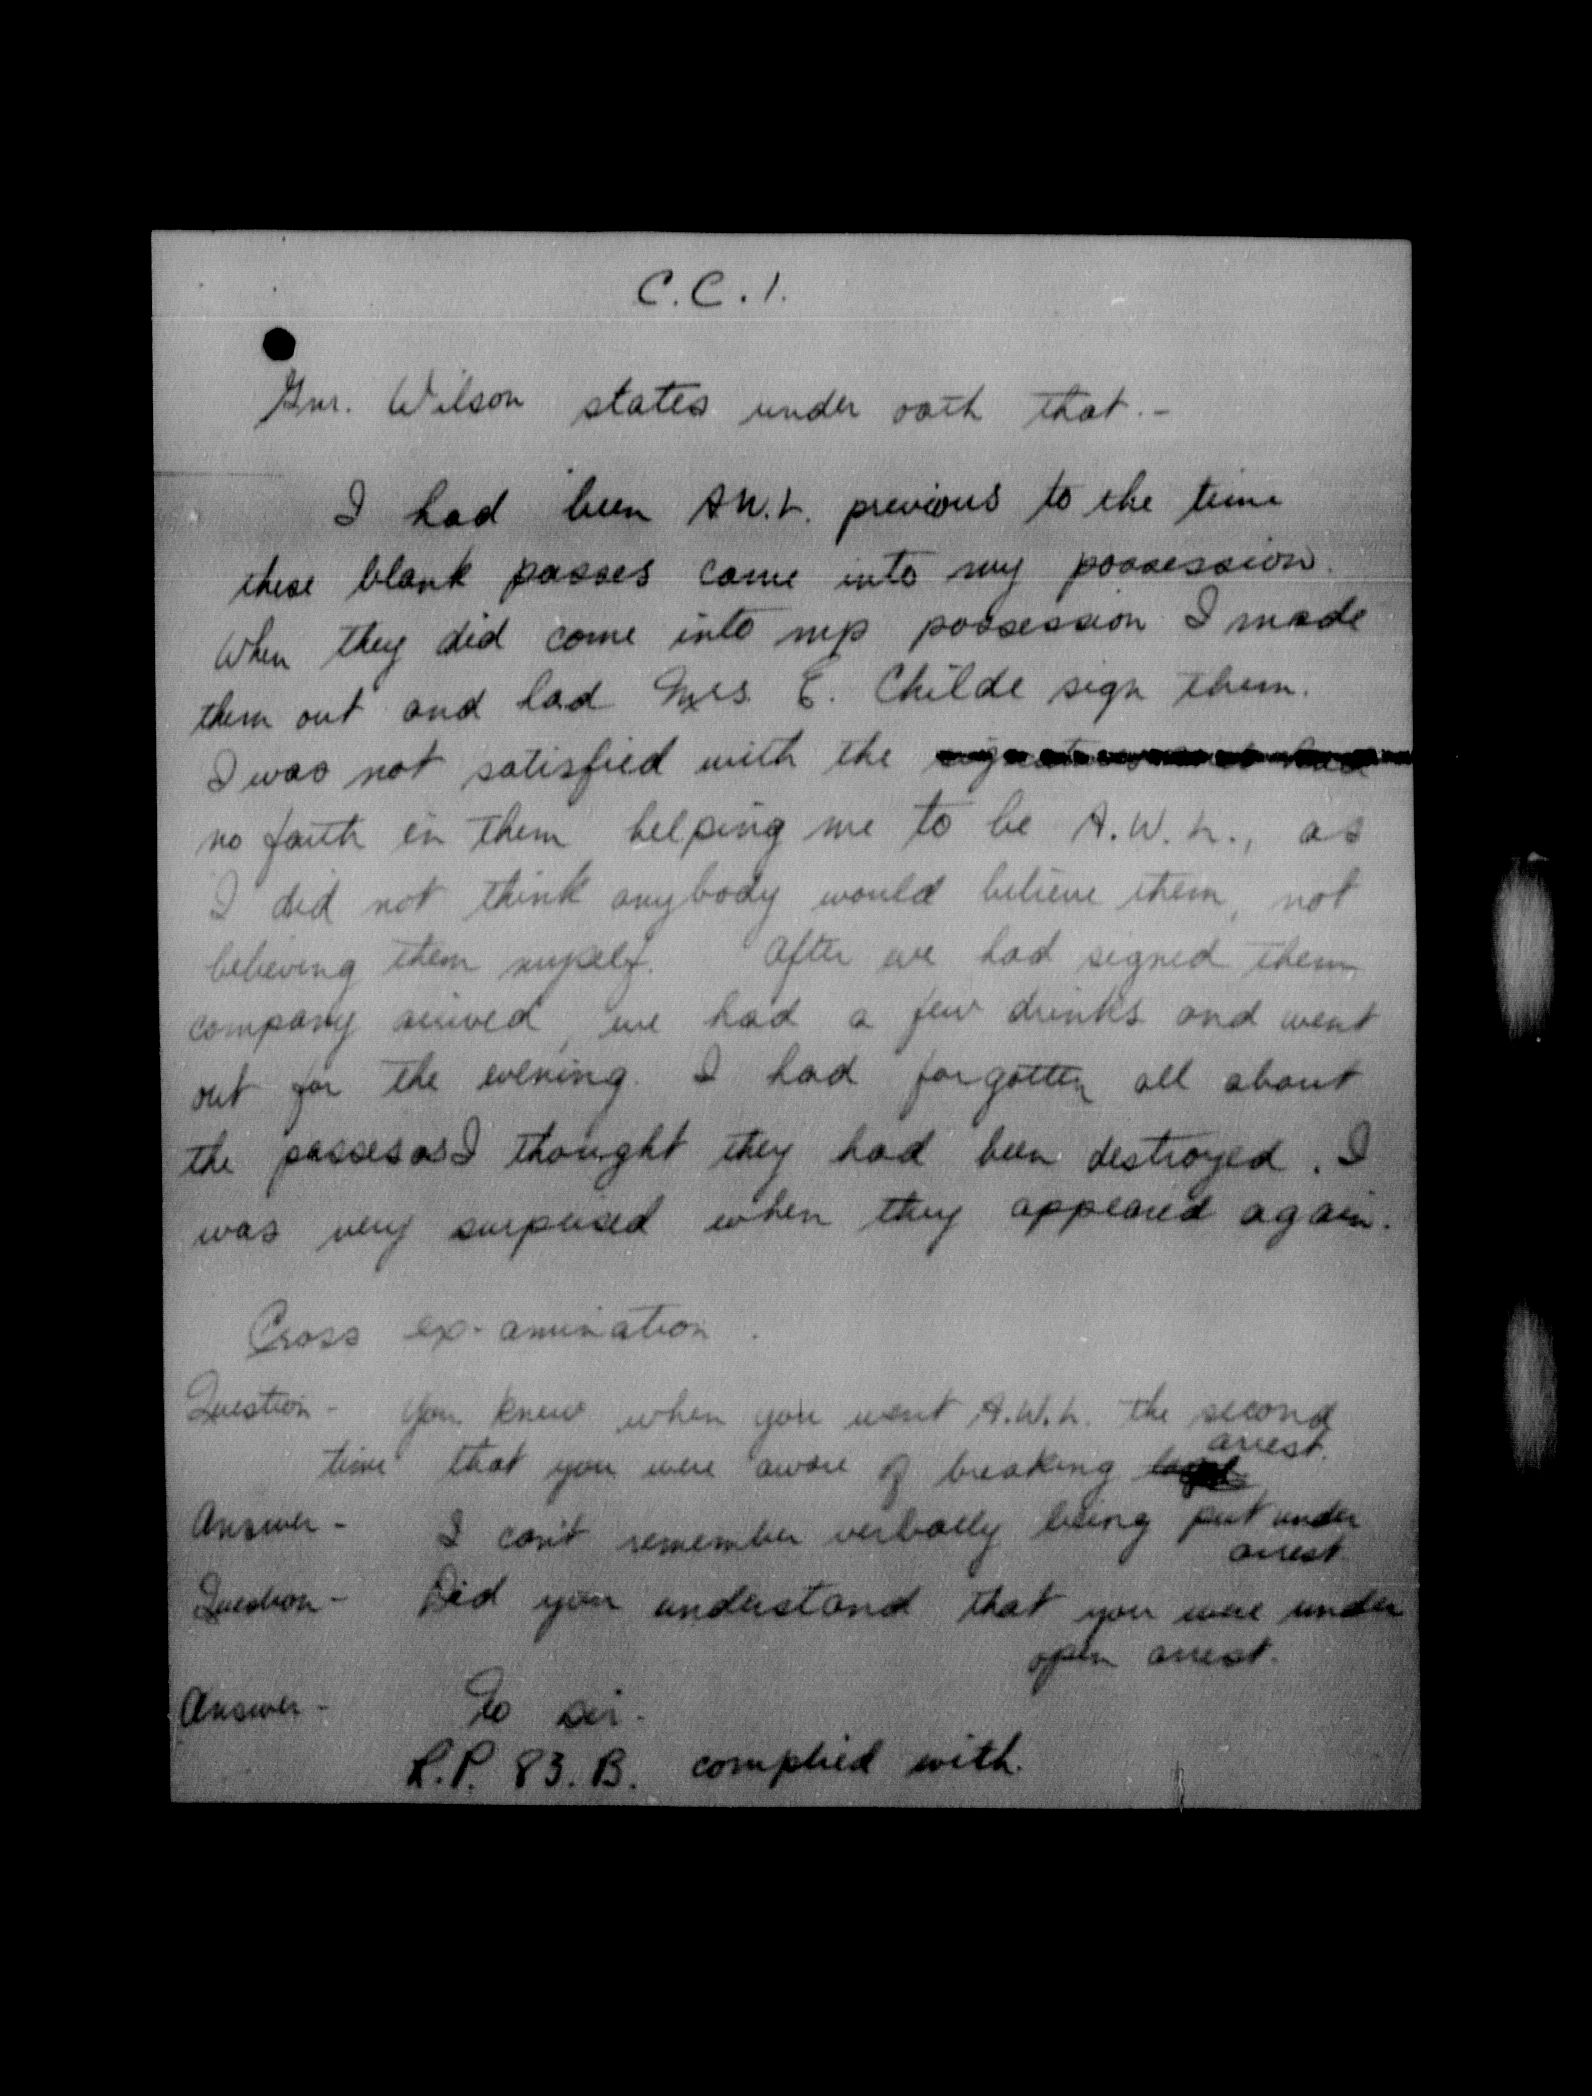 C.C.1.
Gnr. Wilson states under oath that.-
I had been A.W.L. previous to the time
these blank passes came into my possession.
When they did come into my possession I made
them out and had Mrs E. Childe sign them.
I was not satisfied with the
no faith in them helping me to be A.W.L., as
I did not think anybody would believe them, not
believing them myself. After we had signed them
company arrived, we had a few drinks and went
out for the evening. I had forgotten all about
the passes as I thought they had been destroyed. I
was very surprised when they appeared again.
Cross ex-amination.
Question - You knew when you went A.W.L. the second
time that you were aware of breaking arrest.
Answer - I can't remember verbally being put under
arrest.
Question - Did you understand that you were under
open arrest.
Answer - No sir.
R.P. 83.B. complied with.